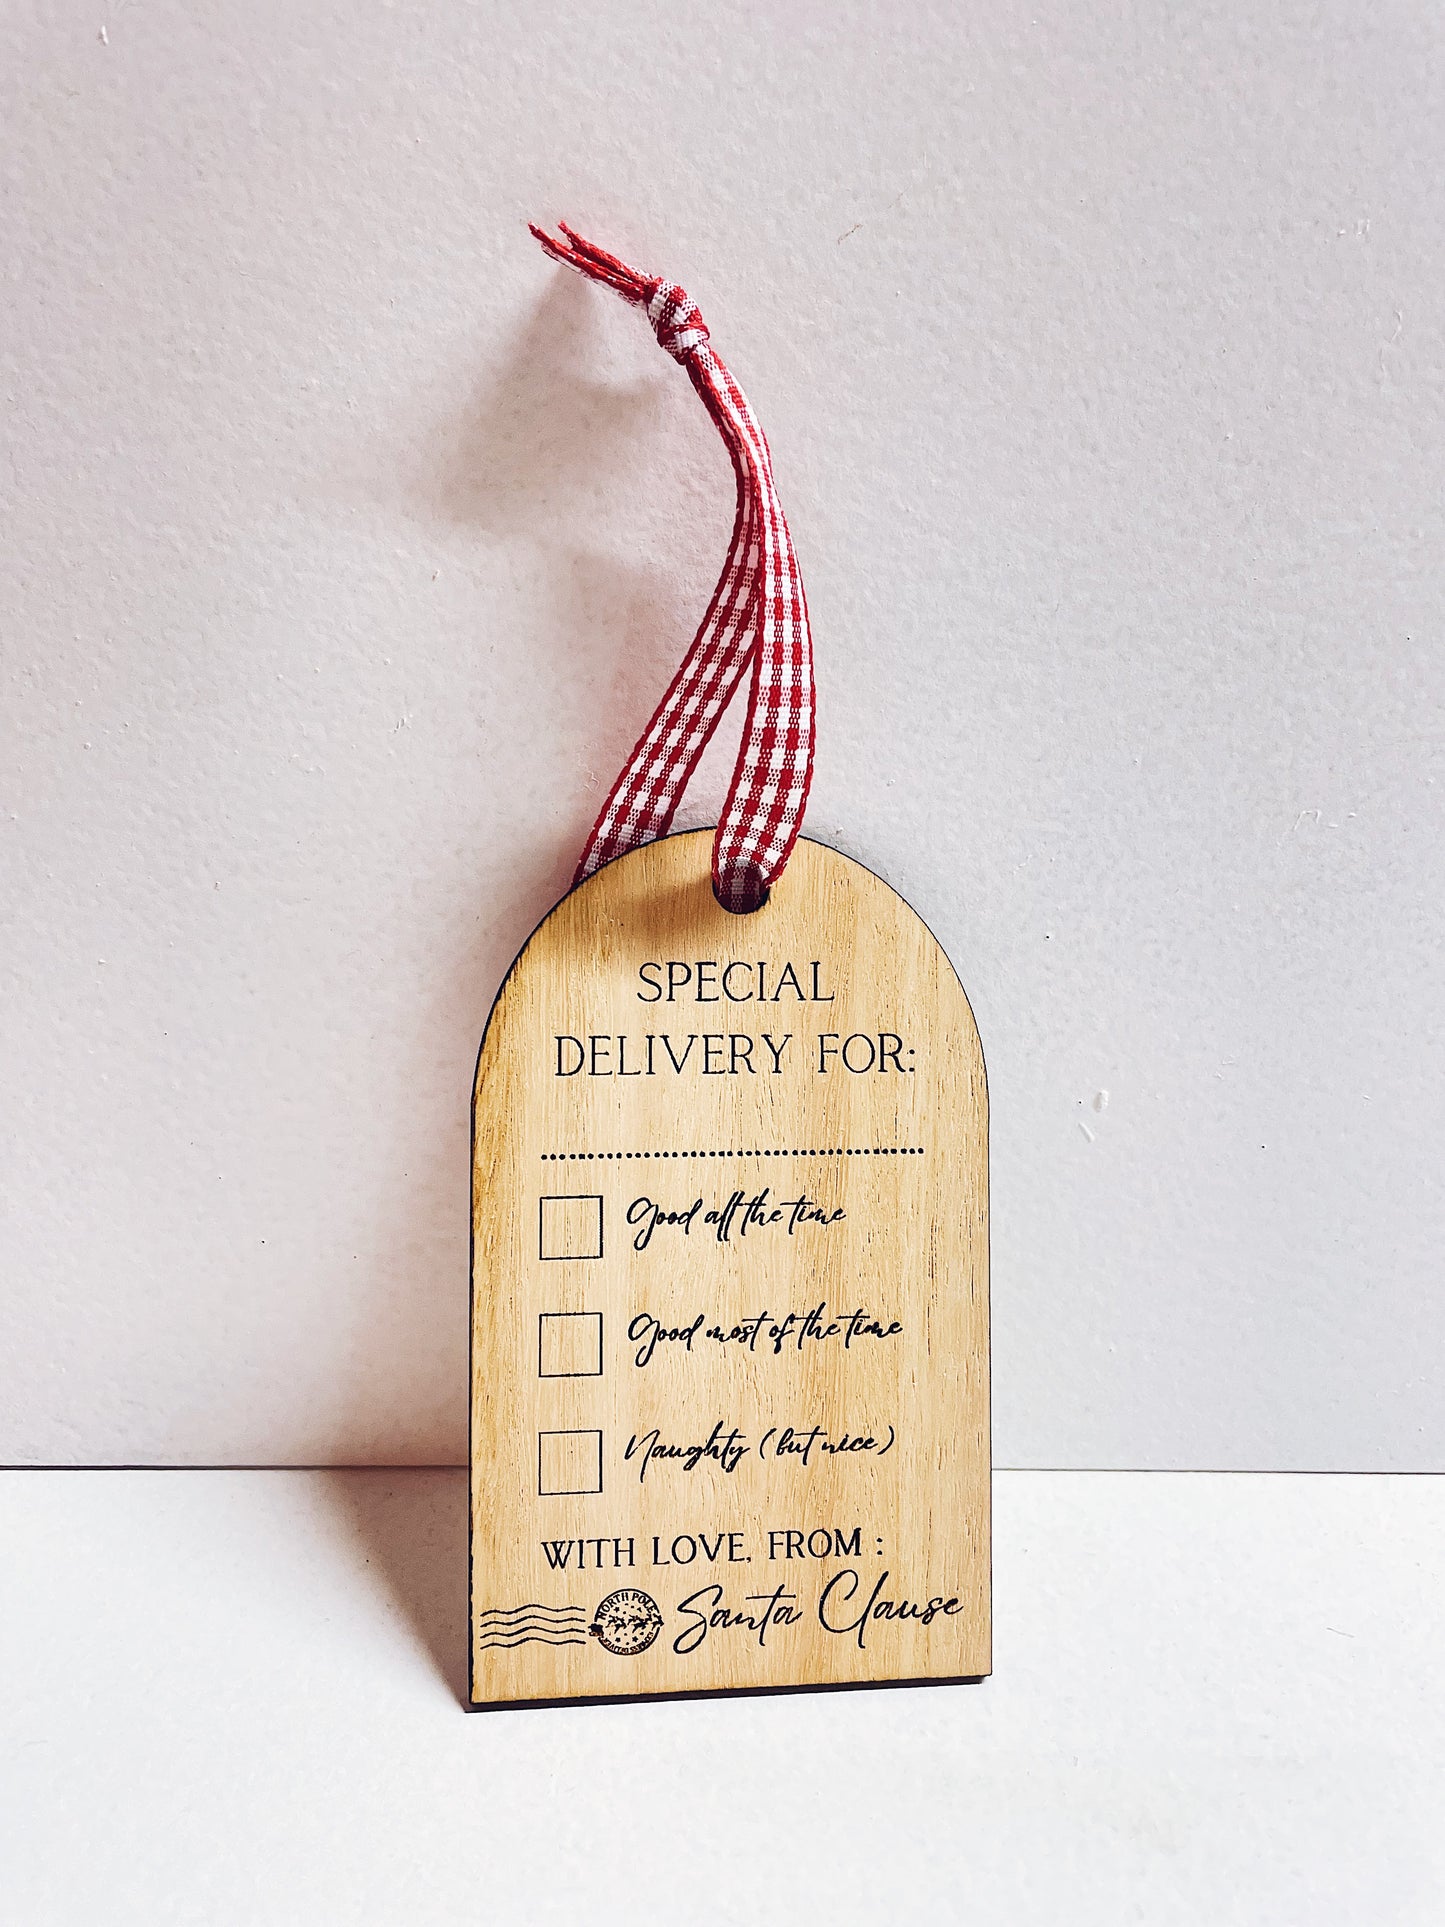 SPECIAL
DELIVERY FOR:
Good all the time
Good most of the time
Naughty (but nice)
WITH LOVE, FROM :
NORTH POLE
Santa Clause